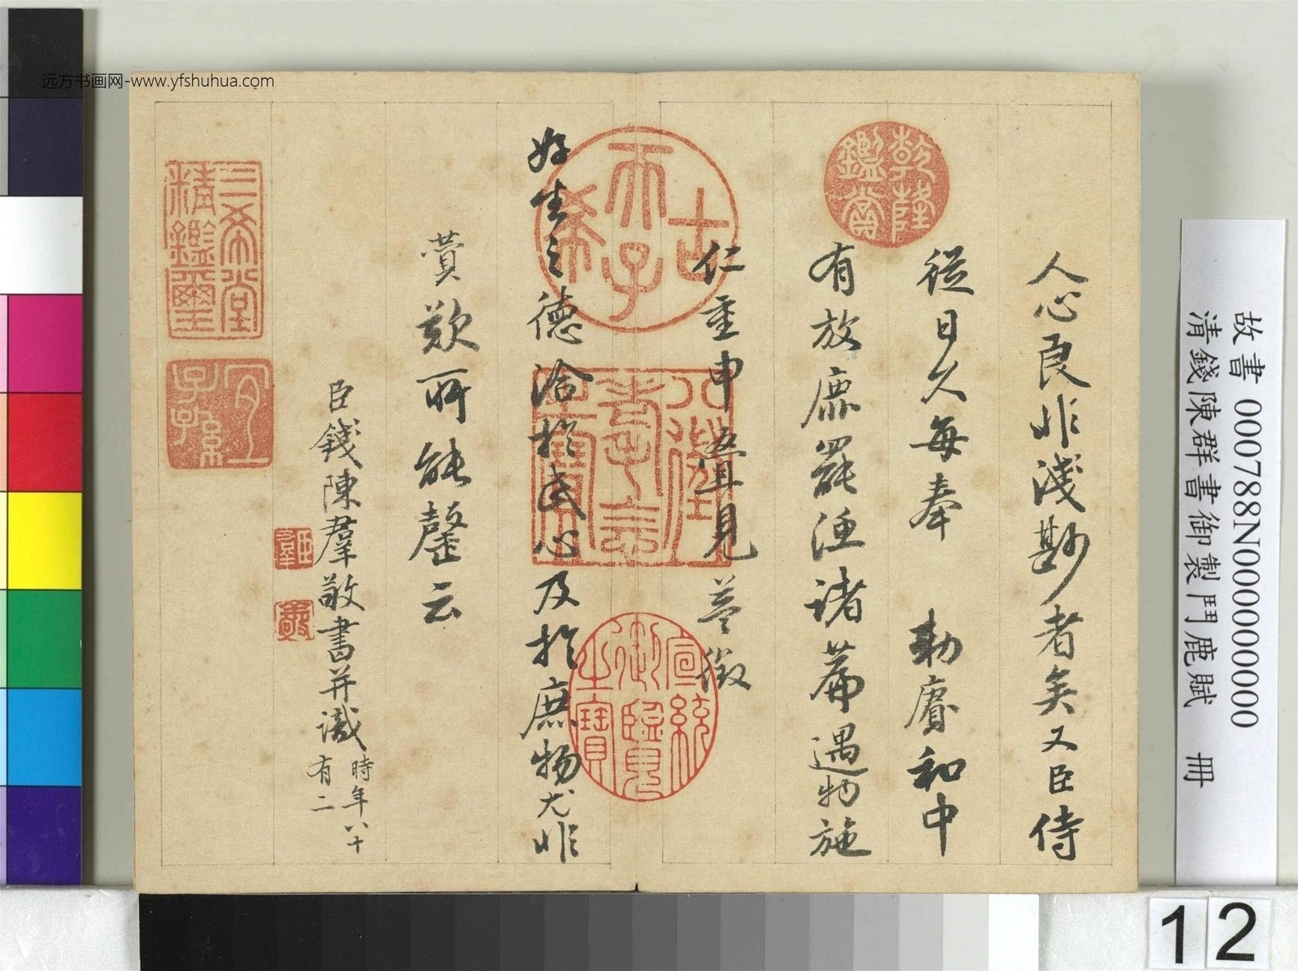 远方书画网-www.yfshuhua.com
人心良非淺尠者矣又臣侍
從日久每奉 勅賡和中
有放鹿罷涶諸篇遇物施
仁重申 疊見益徵
好生之德洽於民心及於庶物尤非
蕓歎所能罄云
臣錢陳羣敬書并識 時年八十有二
乾隆鑑賞
古希天子
八徵耄念之寶
宣統御覽之寶
三希堂精鑑璽
宜子孫
臣羣
故書 000788N000000000
清錢陳群書御製鬥鹿賦 冊
12